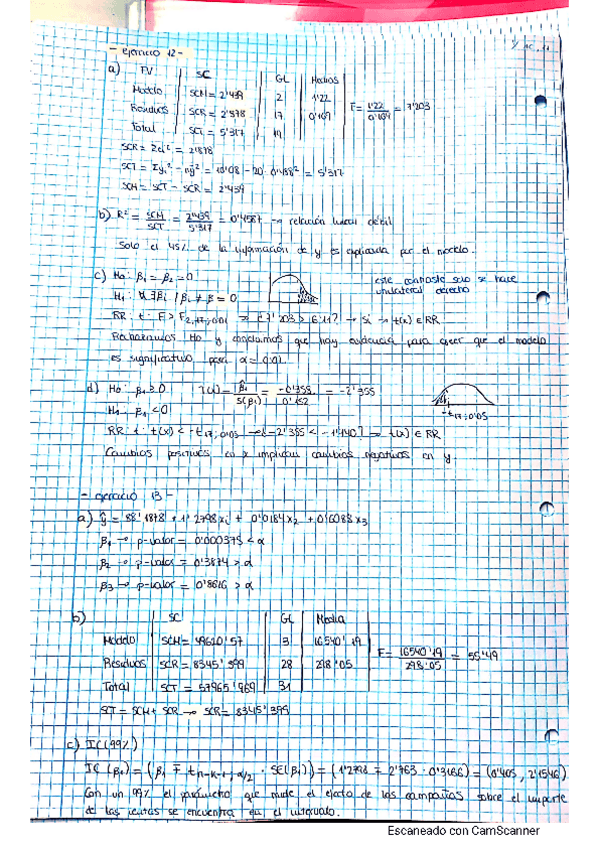 - ejercicio 12 -
a) FV SC GL Medias
Modelo SCM = 2'439 2 1'22
Residuos SCR = 2'878 17 0'169 F = 1'22 / 0'169 = 7'203
Total SCT = 5'317 19
SCR = Σei² = 2'878
SCT = Σyi² - nȳ² = - 20 · = 5'317
SCM = SCT - SCR = 2'439
b) R² = SCM / SCT = 2'439 / 5'317 = 0'4587 → relación lineal débil
Solo el 45% de la información de y es explicada por el modelo.
c) H0: β1 = β2 = 0 este contraste solo se hace
unilateral derecho
H1: ∃βi / βi ≠ β = 0
RR: t: F > F2,17;0'01 ⇒ ¿7'203 > 6'11? → Sí → t(x) ∈ RR
Rechazamos H0 y concluimos que hay evidencia para creer que el modelo
es significativo para α = 0'01
d) H0: β1 ≥ 0 t(x) = β̂1 / S(β1) = -0'358 / 0'152 = -2'355
H1: β1 < 0 -t17;0'05
RR: t: t(x) < -t17;0'05 → ¿-2'355 < -1'740? ⇒ t(x) ∈ RR
Cambios positivos en x implican cambios negativos en y.
- ejercicio 13 -
a) ŷ = 88'1878 + 1'2798x1 + 0'0184x2 + 0'6088x3
β1 → p-valor = 0'000375 < α
β2 → p-valor = 0'3874 > α
β3 → p-valor = 0'8616 > α
b) SC GL Media
Modelo SCM = 49620'57 3 16540'19
Residuos SCR = 8345'399 28 298'05 F = 16540'19 / 298'05 = 55'49
Total SCT = 57965'969 31
SCT = SCM + SCR → SCR = 8345'399
c) IC (99%)
IC (β1) = (β1 ∓ tn-k-1; α/2 · SE(β1)) = (1'2798 ∓ 2'763 · 0'3166) = (0'405, 2'1546)
Con un 99% el parámetro que mide el efecto de las campañas sobre el importe
de las ventas se encuentra en el intervalo.
Escaneado con CamScanner